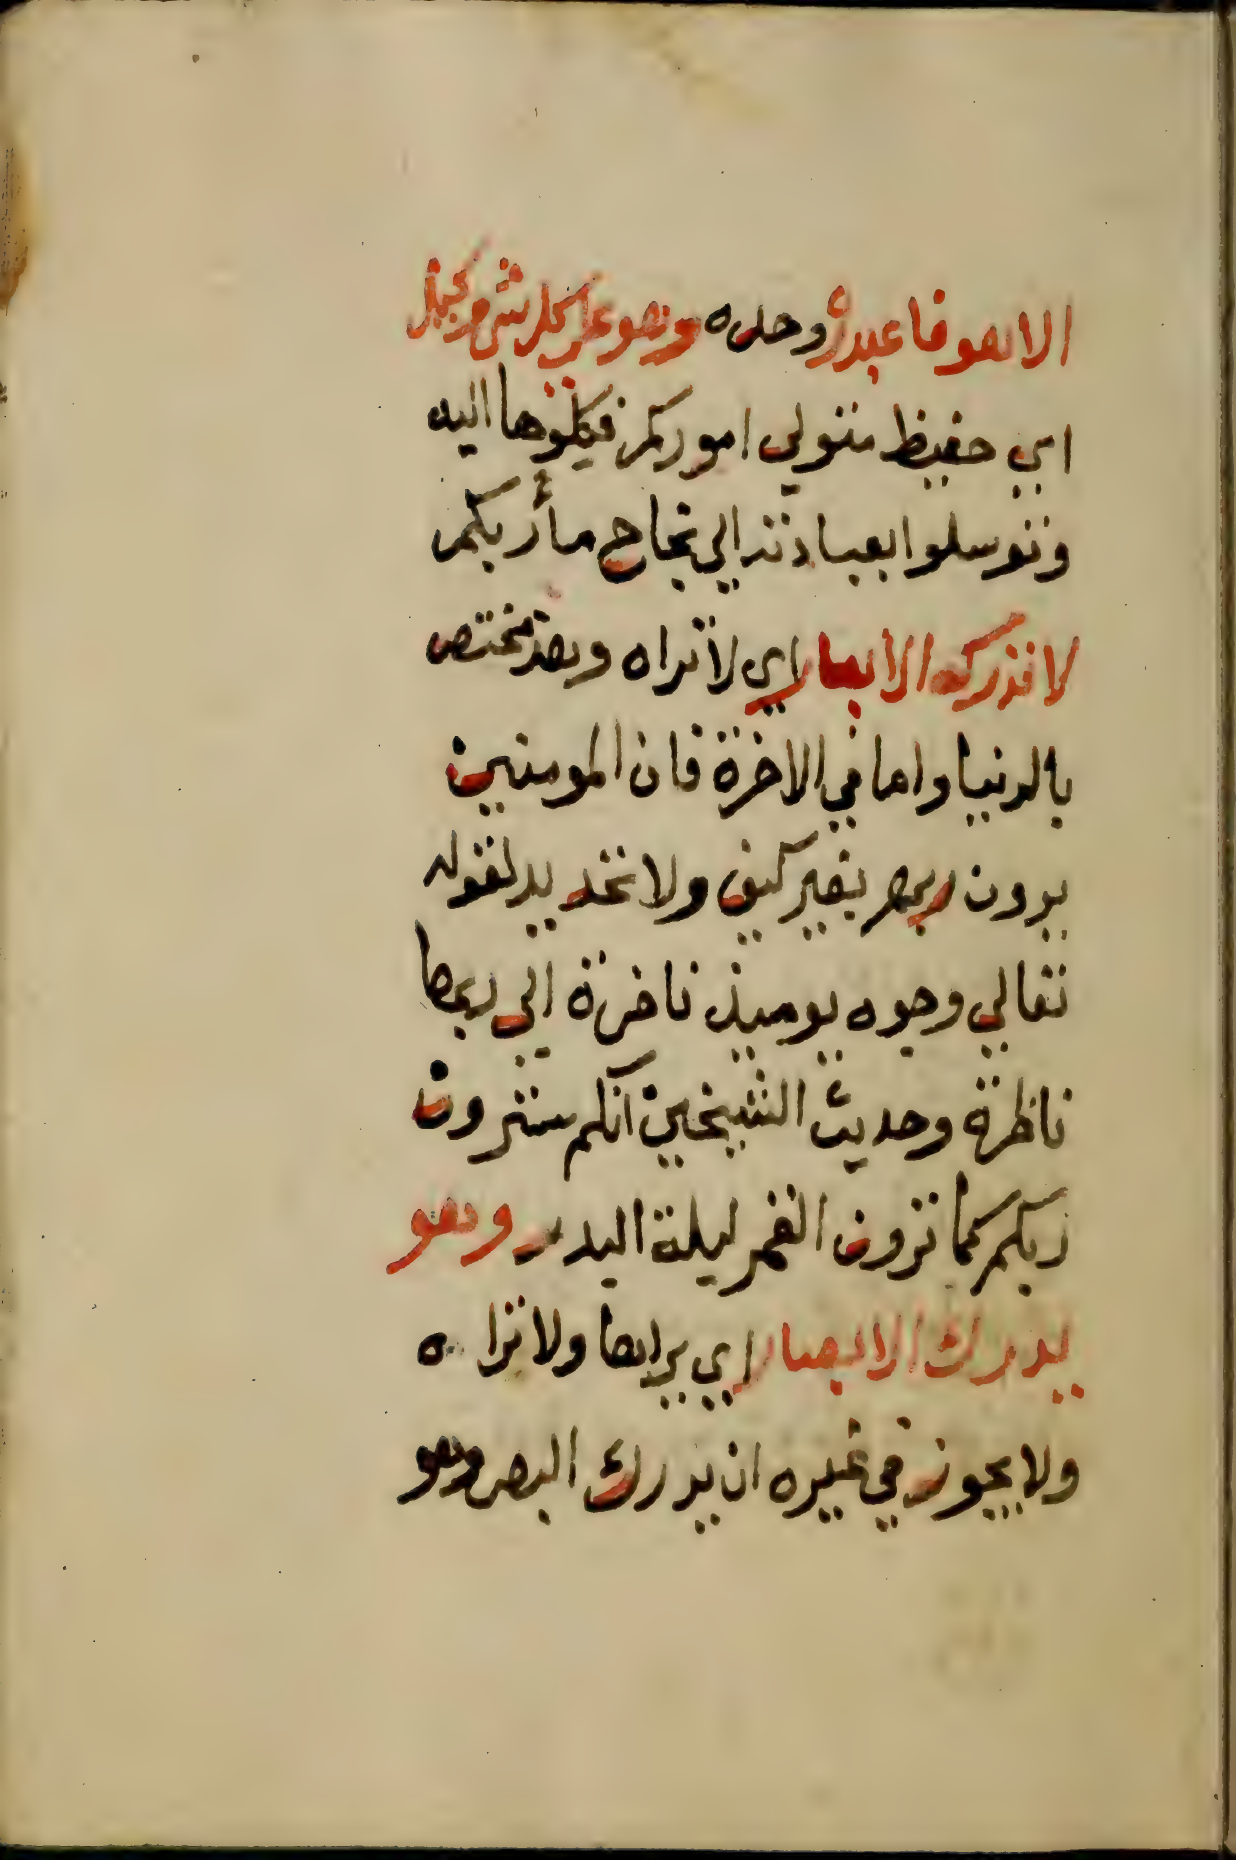 الا هو فاعبدوه وحده وهو على كل شي وكيل
اي حفيظ متولي اموركم فيكلوها اليه
وتوسلوا بعبادته الي نجاح مأربكم
لا تدركه الابصار اي لا تراه وهذ مختص
بالدنيا واما في الاخرة فان المومنين
يرون ربهم بغير كيف ولا تحديد لقوله
تعالي وجوه يوميذ ناضرة الي ربها
ناظرة وحديث الشيخين انكم سترون
ربكم كما ترون القمر ليلة البدر وهو
يدرك الابصار اي يراها ولا تراه
ولا يجوز في غيره ان يدرك البصر وهو